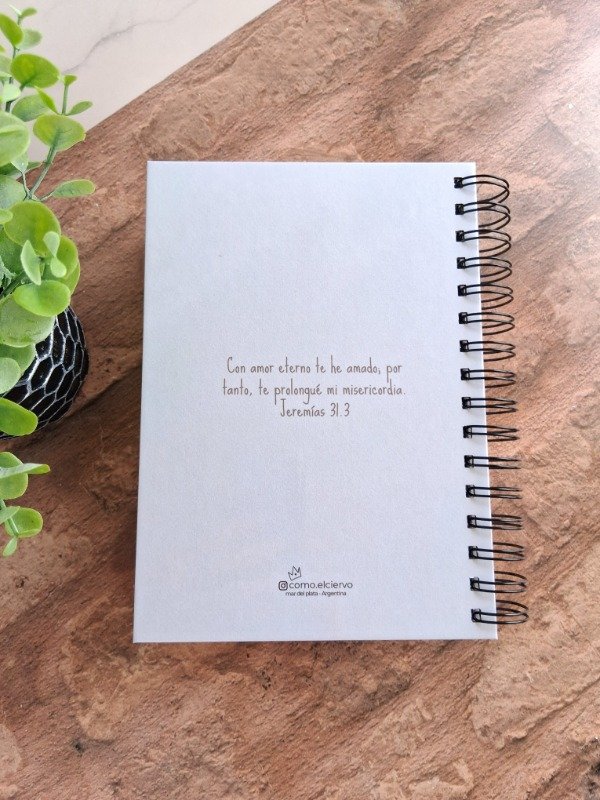 Con amor eterno te he amado; por
tanto, te prolongué mi misericordia.
Jeremías 31.3
como.elciervo
mar del plata - Argentina